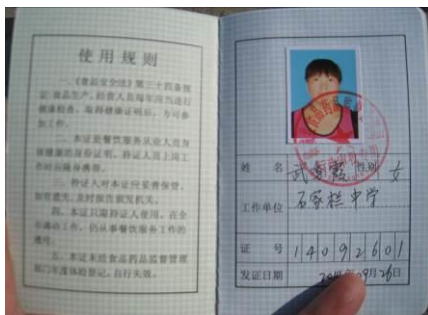 使用规则
一、《食品安全法》第三十四条规
定：食品生产、经营人员每年应当进行
健康检查，取得健康证明后，方可参
加工作。
二、本证是餐饮服务从业人员身
体健康的身份证明，持证人员上岗工
作时应随身携带。
三、持证人对本证应妥善保管，
如有遗失，及时报告颁发机关。
四、本证只限持证人使用，在全
市流动工作，仍从事餐饮服务工作的
通用。
五、本证未经食品药品监督管理
部门年度体检登记，自行失效。
姓 名 武 霞 性别 女
工作单位 石家栏中学
证 号 14092601
发证日期 09月26日